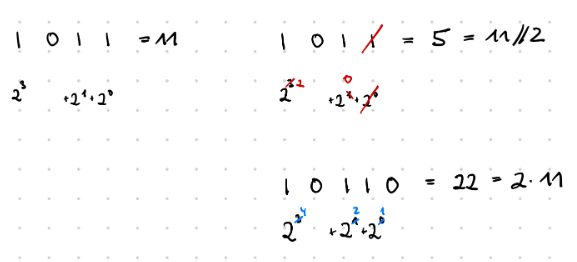 1 0 1 1 = 11
2³ +2¹+2⁰
1 0 1 1 = 5 = 11//2
2³ 2 +2¹ 0 +2⁰
1 0 1 1 0 = 22 = 2 · 11
2³ 4 +2¹ 2 +2⁰ 1